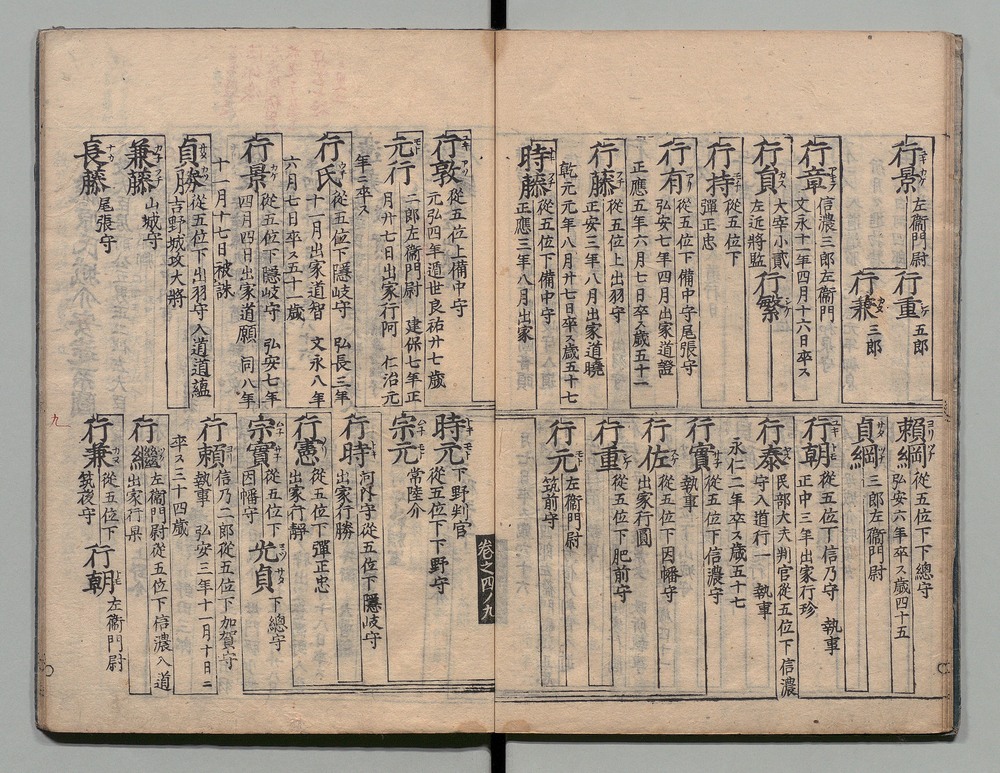 行景 左衞門尉
行重 五郎
行兼 三郎
行章 信濃三郎左衞門
文永十一年四月十六日卒ス
行貞 大宰小貳
左近將監
行繁
行持 從五位下
彈正忠
行有 從五位下備中守尾張守
弘安七年四月出家道證
正應五年六月七日卒ス歳五十二
行藤 從五位上出羽守
正安三年八月出家道曉
乾元元年八月廿七日卒ス歳五十七
時藤 從五位下備中守
正應三年八月出家
賴綱 從五位下下總守
弘安六年卒ス歳四十五
貞綱 三郎左衞門尉
行朝 從五位下信乃守 執事
正中三年出家行珍
行泰 民部大夫判官從五位下信濃
守入道行一 執事
永仁二年卒ス歳五十七
行實 從五位下信濃守
執事
行佐 從五位下因幡守
出家行圓
行重 從五位下肥前守
行元 左衞門尉
筑前守
卷之四ノ九
行敦 從五位上備中守
元弘四年遁世良祐廿七歳
元行 二郎左衞門尉 建保七年正
月廿七日出家行阿 仁治元
年二卒ス
行氏 從五位下隱岐守 弘長三年
十一月出家道智 文永八年
六月七日卒ス五十一歳
行景 從五位下隱岐守 弘安七年
四月四日出家道願 同八年
十一月十七日被誅
貞勝 從五位下出羽守入道道蘊
吉野城攻大將
兼藤 山城守
長藤 尾張守
時元 下野判官
從五位下下野守
宗元 常陸介
行時 河内守從五位下隱岐守
出家行勝
行憲 從五位下彈正忠
出家行靜
宗實 從五位下
因幡守
光貞 下總守
行賴 信乃二郎從五位下加賀守
執事 弘安三年十一月十日二
卒ス三十四歳
行繼 左衞門尉從五位下信濃入道
出家行
行兼 從五位下
筑後守
行朝 左衞門尉
九